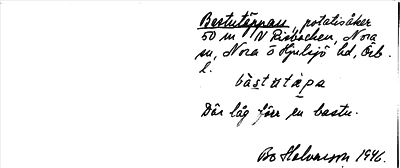 Bastutäppan, potatisåker
50 m N Risbacken, Nora
sn, Nora o Hjulsjö hd, Örb.
l.
bàstutäpa
Där låg förr en bastu.
Bo Halvarson 1946.